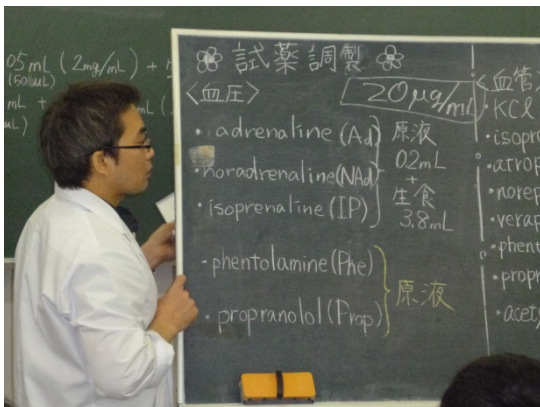 05mL (2mg/mL) +
(50μL)
mL +
❀ 試薬調製 ❀
<血圧>
20μg/mL
・adrenaline (Ad)
・noradrenaline (NAd)
・isoprenaline (IP)
原液
0.2mL
+
生食
3.8mL
・phentolamine (Phe)
・propranolol (Prop)
原液
<血管
・KCl
・isopr
・atrop
・norep
・verap
・phent
・propr
・acet